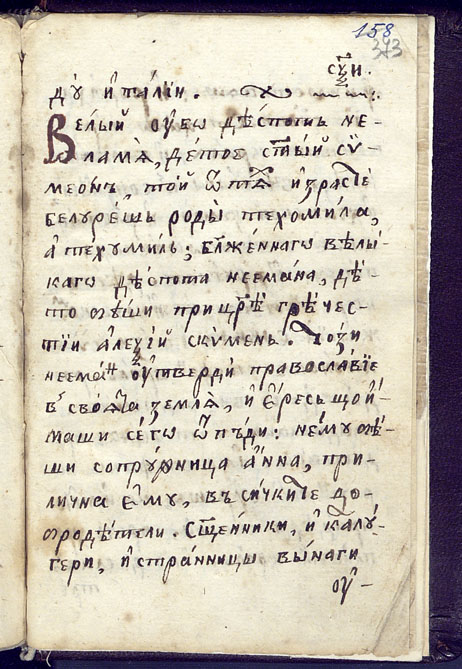 158
373
сѯи.
дꙋ̀ и҆талїи.
Велый ѹ҆бѡ дѣспотъ не-
ламѧ, детос ст҃ый сѵ-
меѡнъ, той ѿ тѧ̑ и҆зрастїе
белурешь роды техомила,
а҆ техумилъ; бл҃женнаго вѣлы-
каго дѣспота неемана, дѣ-
то ѡущи при цр҃ѣ грѣчес-
тїи алеѯїй скумень. Този
нееманъ ѹ҆тверди православїе
въ своѧта землѧ, и҆ є҆ресь щой-
маши сего ѿпъди: нему ѡѣ-
ши сопружница а҆нна, при-
лична є҆му, въ сичките до-
бродѣтели. Сщ҃енники, и҆ калу-
гери, и҆ странницы вынаги
ѹ҆-